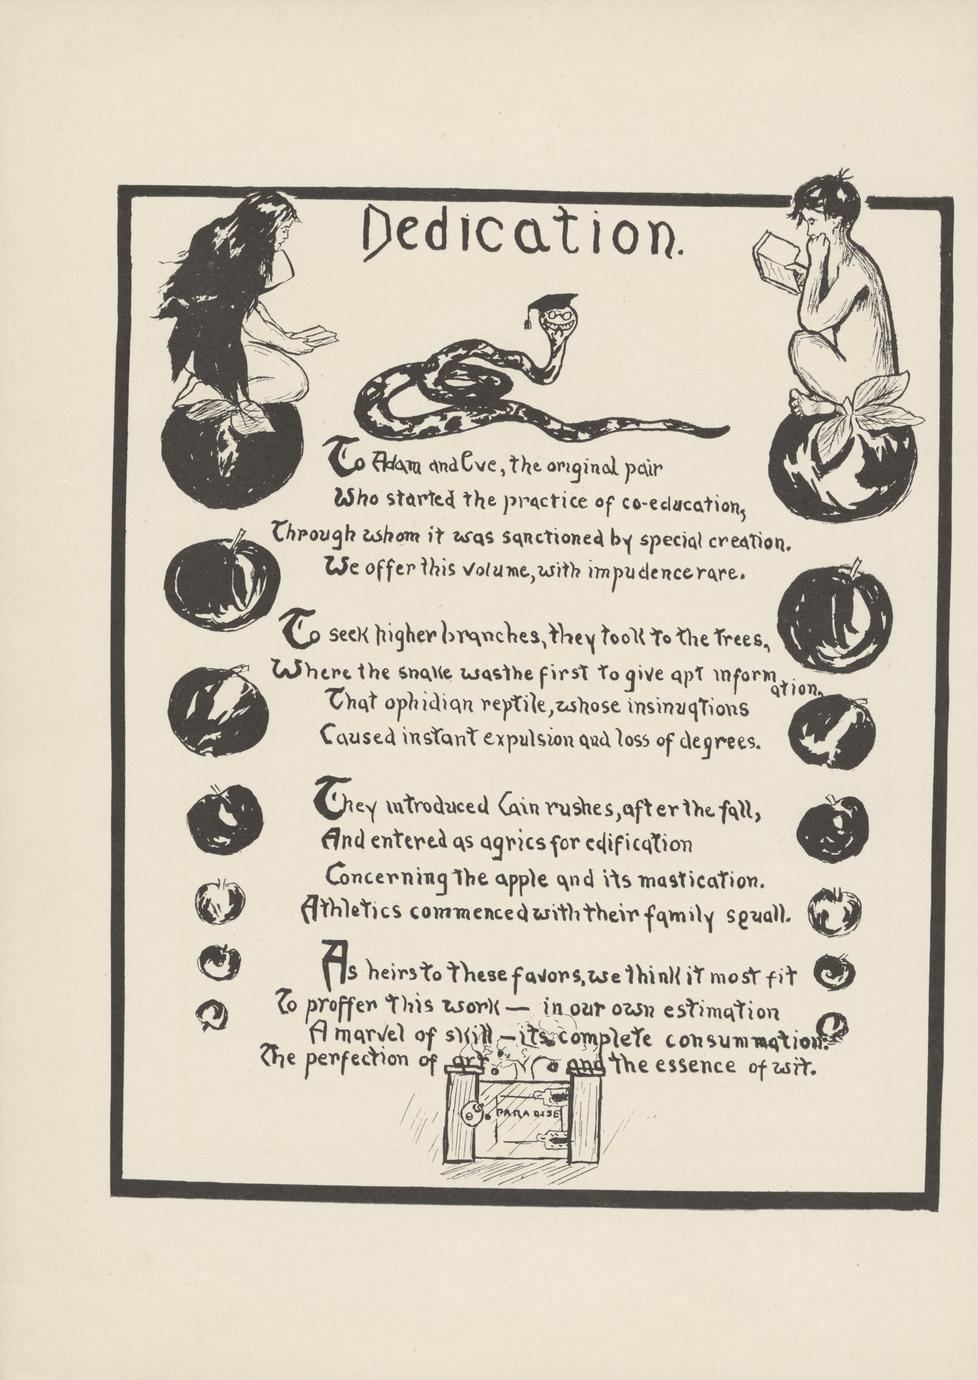 Dedication.
To Adam and Eve, the original pair
Who started the practice of co-education,
Through whom it was sanctioned by special creation.
We offer this volume, with impudence rare.
To seek higher branches, they took to the trees,
Where the snake was the first to give apt information,
That ophidian reptile, whose insinuations
Caused instant expulsion and loss of degrees.
They introduced Cain rushes, after the fall,
And entered as agrics for edification
Concerning the apple and its mastication.
Athletics commenced with their family squall.
As heirs to these favors, we think it most fit
To proffer this work — in our own estimation
A marvel of skill — its complete consummation.
The perfection of art and the essence of wit.
PARADISE